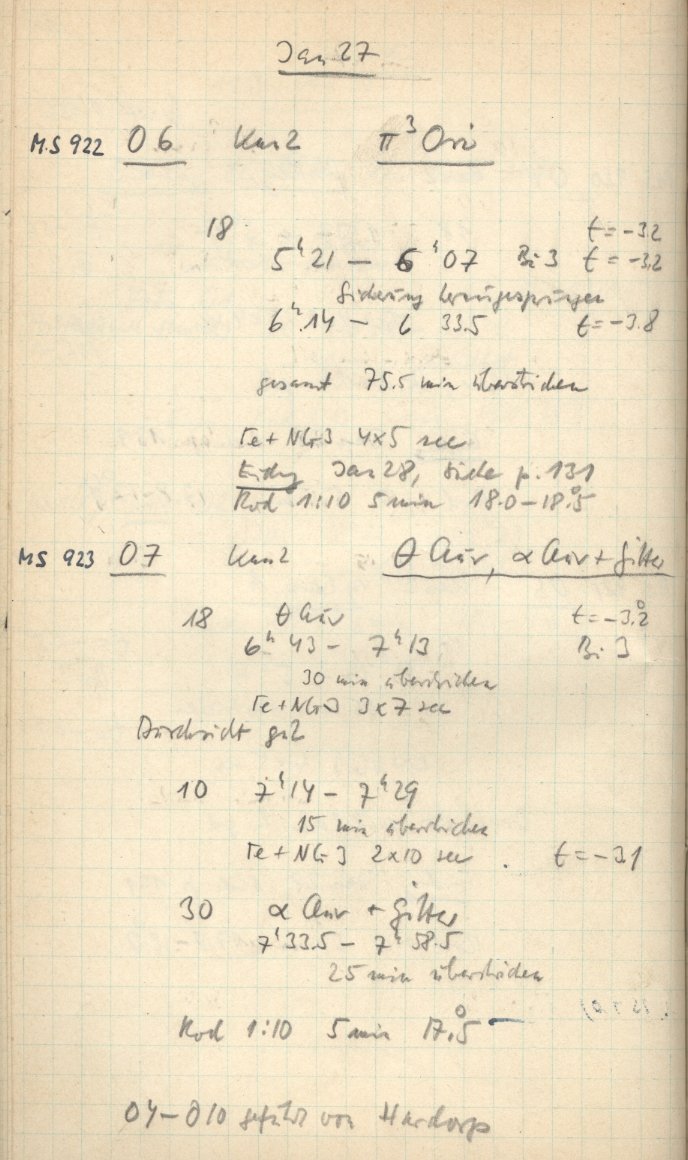 Jan 27
MS 922 06 Kas2 π³ Ori
18 t = -3.2
5ʰ21 – 6ʰ07 Bi 3 t = -3.2
Sicherung herausgesprungen
6ʰ14 – 6 33.5 t = -3.8
gesamt 75.5 min überstrichen
Fe + NG3 4x5 sec
Jan 28, siehe p. 131
Rod 1:10 5 min 18.0 – 18.°5
MS 923 07 Kas2 θ Aur, α Aur + Gitter
18 θ Aur t = -3.°2
6ʰ43 – 7ʰ13 Bi 3
30 min überstrichen
Fe + NG3 3x7 sec
Durchsicht gu2
10 7ʰ14 – 7ʰ29
15 min überstrichen
Fe + NG3 2x10 sec t = -3.1
30 α Aur + Gitter
7ʰ33.5 – 7ʰ58.5
25 min überstrichen
Rod 1:10 5 min 17.°5
04 – 010 geführt von Hardorp